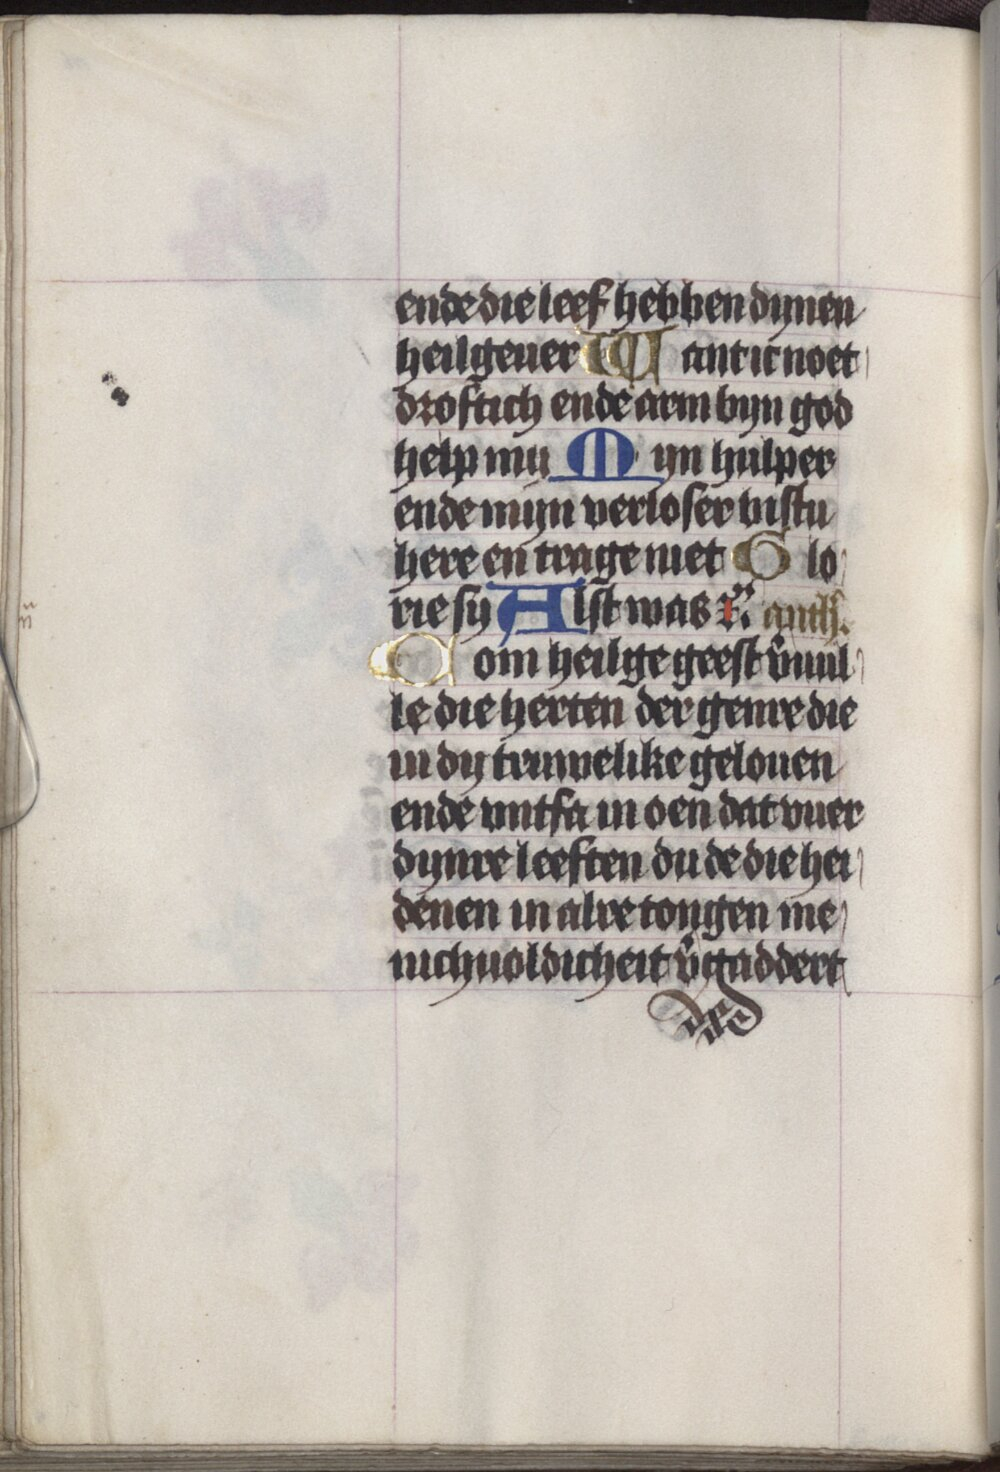 ende die leef hebben dynen
heilgeuer W ant ic noet
droftich ende arm byn god
help my M yn hulper
ende myn verloser bistu
here en trage niet G lo
rie sy Alst was anth.
C om heilge geest v̄uul
le die herten der genre die
in dy truwelike gelouen
ende vntfa in oen dat vuer
dynre leeften du de die hei
denen in alre tongen me
nichuoldicheit v̄gaddert